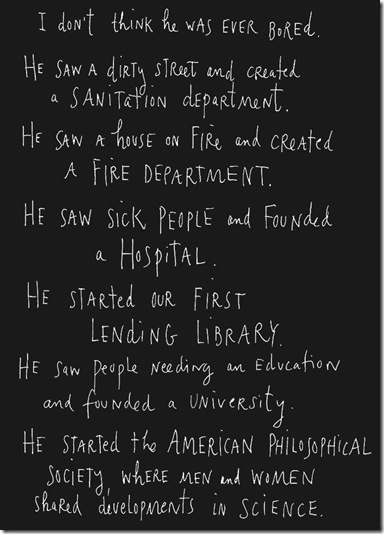 I don't think he was ever bored.
He saw a dirty street and created
a SANitation department.
He saw a house on fire and created
A FIRE DEPARTMENT.
He saw SICK PEOPLE and Founded
a Hospital.
He started our First
LENDING LIBRARY.
He saw people needing an EDUCATION
and founded a UNIVERSITY.
He started the AMERICAN PHILOSOPHICAL
SOCIETY, where MEN and WOMEN
shared developments in SCIENCE.